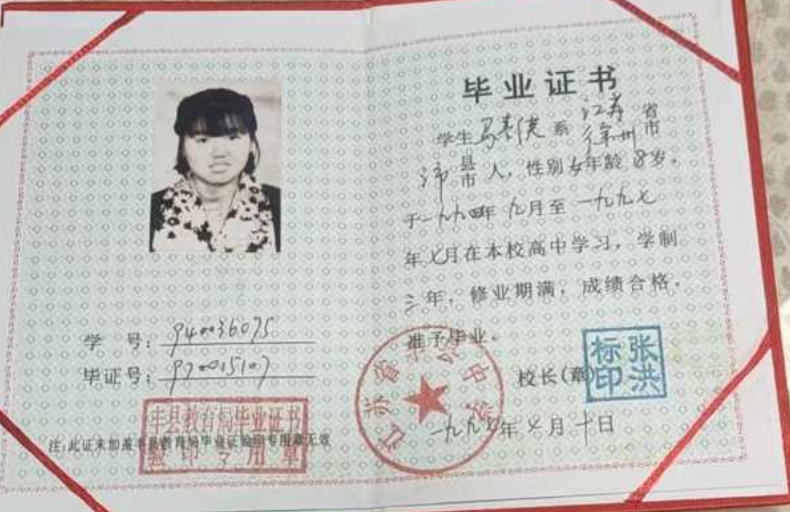 学 号：940036075
毕证号：97005107
丰县教育局毕业证书
验印专用章
注：此证未加盖丰县教育局毕业证验印专用章无效
毕业证书
学生马 系江苏省
徐州市
沛县
市人，性别女年龄8岁。
于一九九四年九月至一九九七
年七月在本校高中学习，学制
三年，修业期满，成绩合格，
准予毕业。
校长(章)
张洪
标印
江苏省 中学
一九九七年七月十日